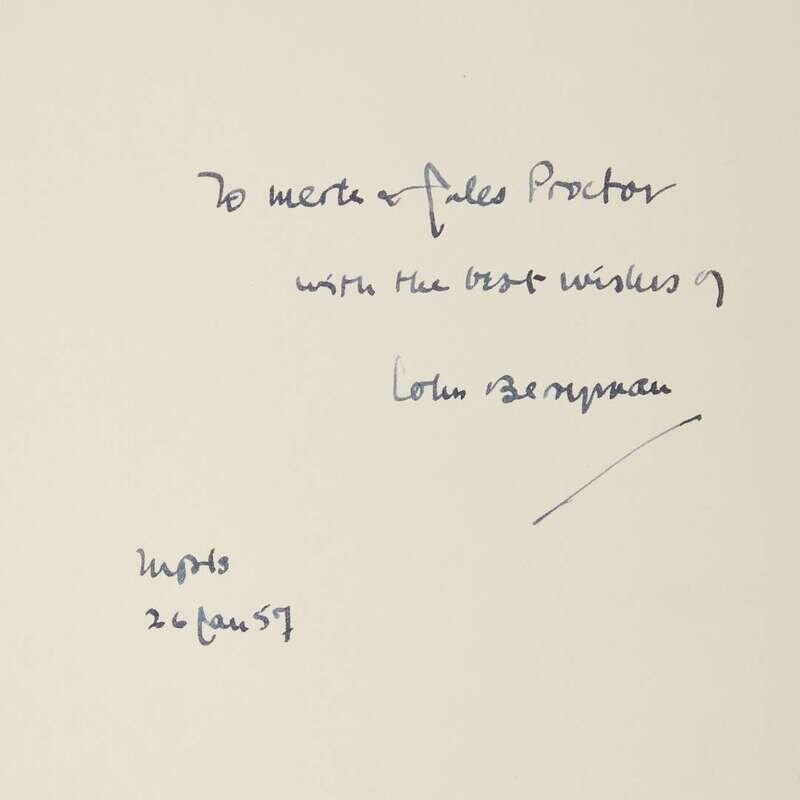 To Merta & Jules Proctor
with the best wishes of
John Berryman
Mpls
26 Jan 57